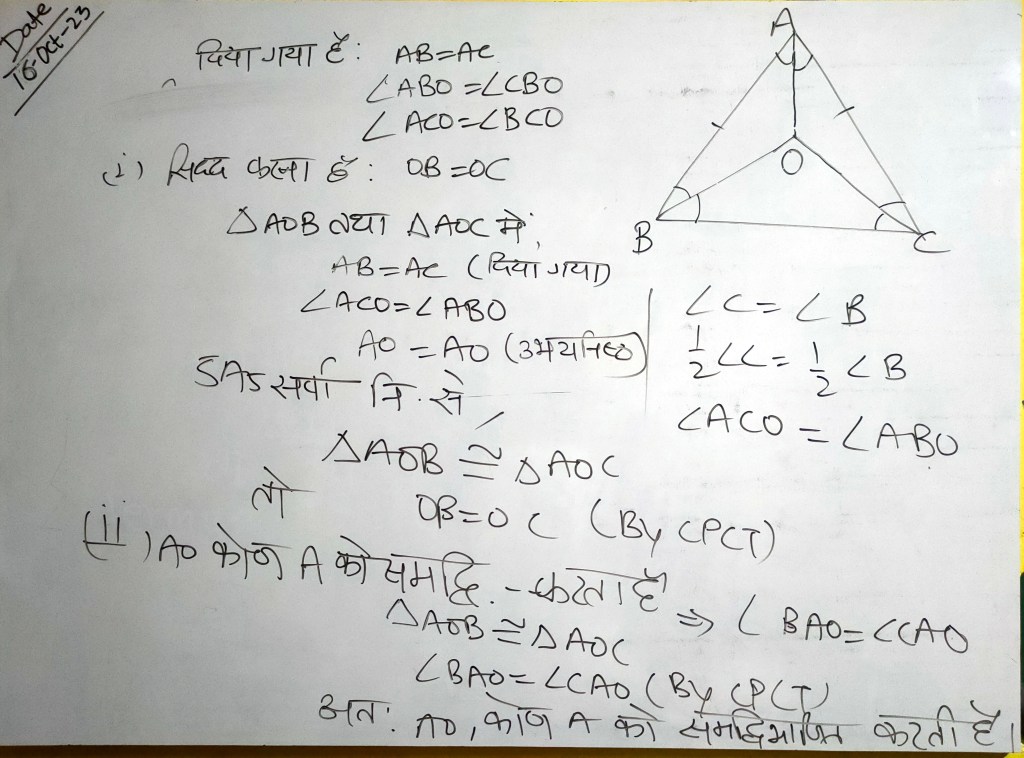 Date
16-Oct-23
दिया गया है: AB=AC
∠ABO=∠CBO
∠ACO=∠BCO
(i) सिद्ध करना है: OB=OC
△AOB तथा △AOC में,
AB=AC (दिया गया)
∠ACO=∠ABO
AO=AO (उभयनिष्ठ)
SAS सर्वा त्रि. से
△AOB ≅ △AOC
तो
OB=OC (By CPCT)
∠C=∠B
1/2∠C=1/2∠B
∠ACO=∠ABO
(ii) AO कोण A को समद्वि.-करता है
⇒ ∠BAO=∠CAO
△AOB≅△AOC
∠BAO=∠CAO (By CPCT)
अतः AO, कोण A को समद्विभाजित करती है।
A
O
B
C